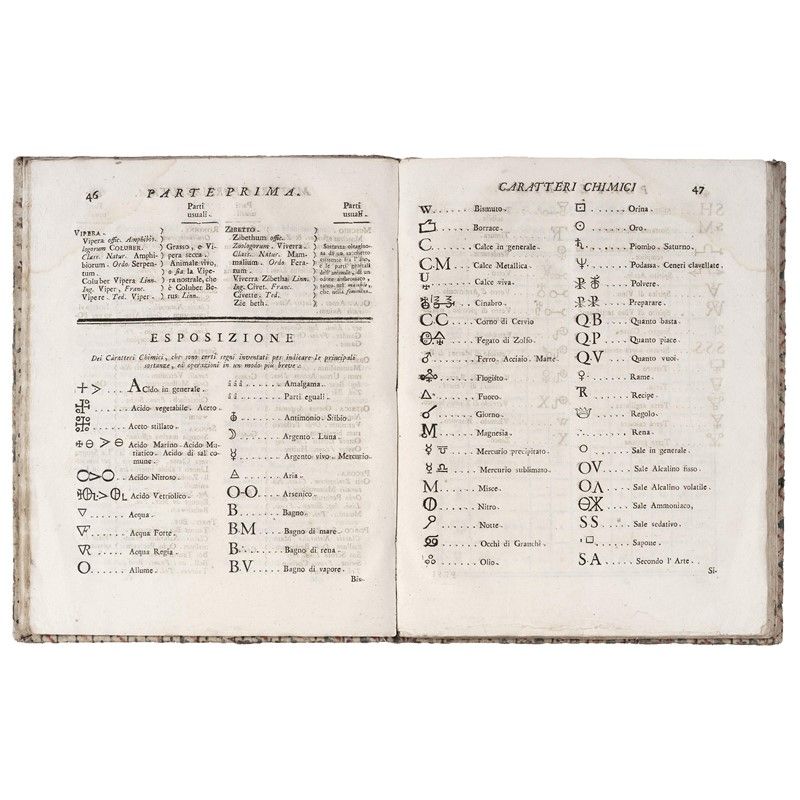 46 PARTE PRIMA.
Parti usuali.
Parti usuali.
VIPERA.
Vipera offic. Amphibio-
logorum COLUBER.
Class. Natur. Amphi-
biorum. Ordo Serpen-
tum.
Coluber Vipera Linn.
Ing. Viper, Franc.
Vipere. Ted. Viper.
Grasso, e Vi-
pera secca.
Animale vivo,
o sia la Vipe-
ra nostrale, che
è Coluber Be-
rus Linn.
ZIBETTO.
Zibethum offic.
Zoologorum. Viverra.
Class. Natur. Mam-
malium. Ordo Fera-
rum.
Viverra Zibetha Linn.
Ing. Civet. Franc.
Civette. Ted.
Zie beth.
ESPOSIZIONE
Dei Caratteri Chimici, che sono certi segni inventati per indicare le principali
sostanze, ed operazioni in un modo più breve.
ACido in generale.
Acido vegetabile. Aceto.
Aceto stillato.
Acido Marino. Acido Mu-
riatico. Acido di sal co-
mune.
Acido Nitroso.
Acido Vetriolico
Acqua.
Acqua Forte.
Acqua Regia.
O ..... Allume.
á á á ...... Amalgama.
á á á ...... Parti eguali.
Antimonio. Stibio.
Argento. Luna.
Argento vivo. Mercurio.
Aria.
O-O .... Arsenico.
B. ...... Bagno.
B M .... Bagno di mare.
B. ..... Bagno di rena.
B. V ..... Bagno di vapore.
Bis-
CARATTERI CHIMICI 47
W ....... Bismuto.
Borrace.
C. ...... Calce in generale.
C. M .... Calce Metallica.
Calce viva.
Cinabro.
C. C .... Corno di Cervio
Fegato di Zolfo.
Ferro. Acciaio. Marte.
Flogisto.
Fuoco.
Giorno.
M ...... Magnesia.
Mercurio precipitato.
Mercurio sublimato.
M ...... Misce.
Nitro.
Notte.
Occhi di Granchi.
Olio.
Orina.
Oro.
Piombo. Saturno.
Podassa. Ceneri clavellate.
Polvere.
Preparare.
Q. B .... Quanto basta.
Q. P .... Quanto piace.
Q. V .... Quanto vuoi.
Rame.
Recipe.
Regolo.
Rena.
Sale in generale.
OV ..... Sale Alcalino fisso.
OΛ ..... Sale Alcalino volatile.
Sale Ammoniaco,
SS ..... Sale sedativo.
Sapone.
S. A ..... Secondo l' Arte.
Si-